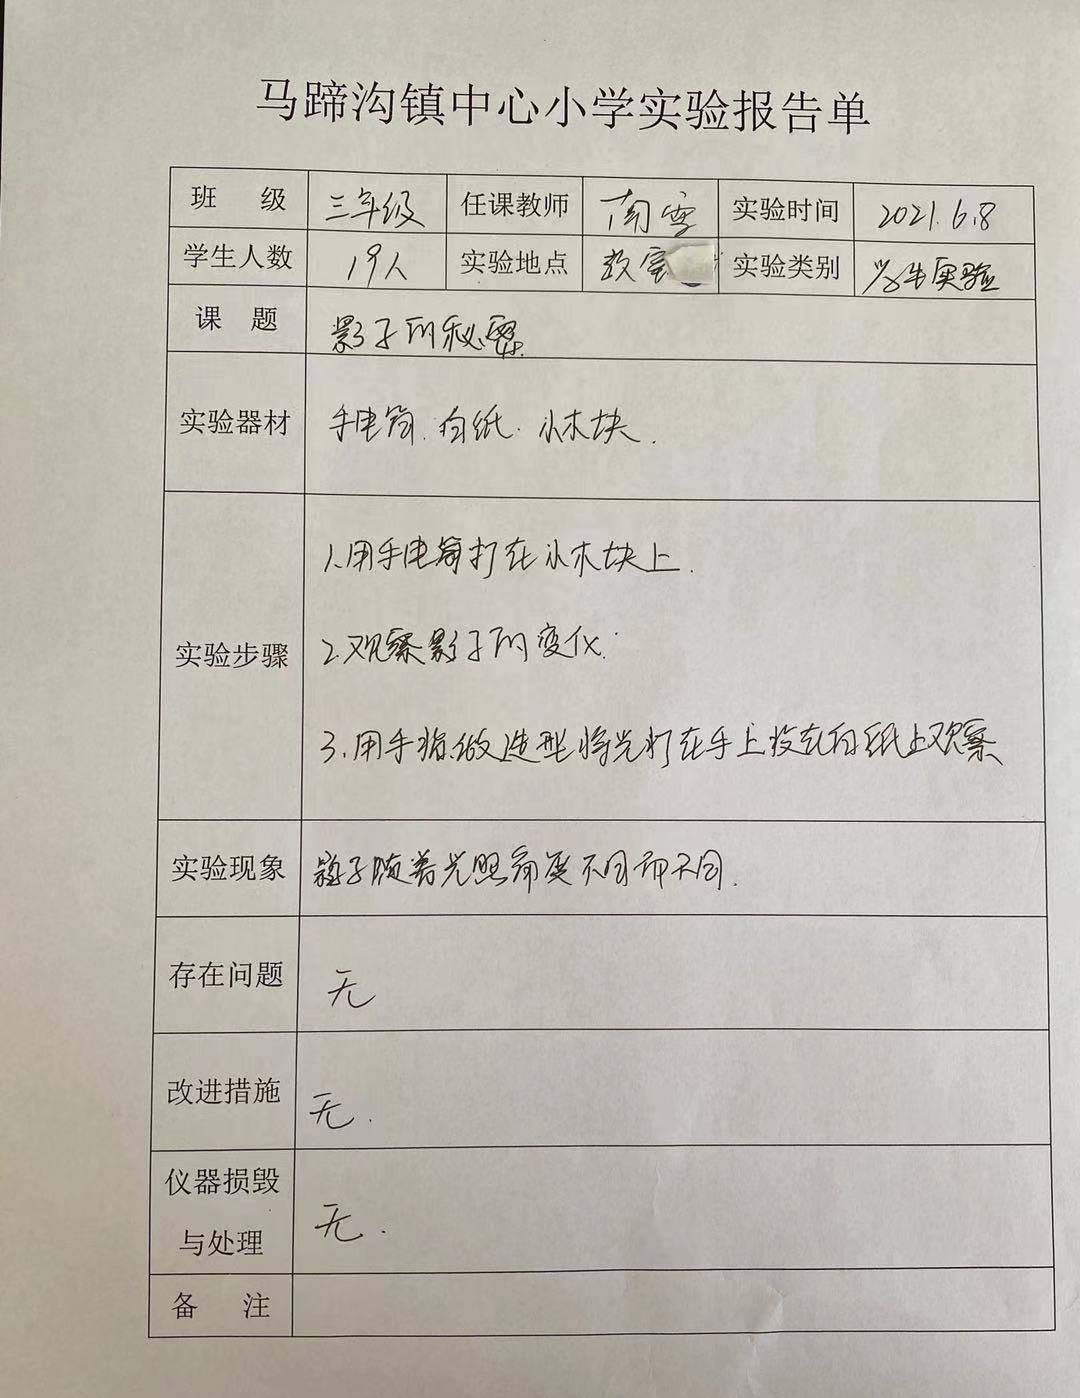 马蹄沟镇中心小学实验报告单
班 级 三年级 任课教师 南雪 实验时间 2021.6.8
学生人数 19人 实验地点 教室 实验类别 学生实验
课 题 影子的秘密
实验器材 手电筒.白纸.小木块.
1.用手电筒打在小木块上.
实验步骤 2.观察影子的变化.
3.用手指做造型将光打在手上投在白纸上观察
实验现象 影子随着光照角度不同而不同.
存在问题 无
改进措施 无.
仪器损毁
与处理 无.
备 注